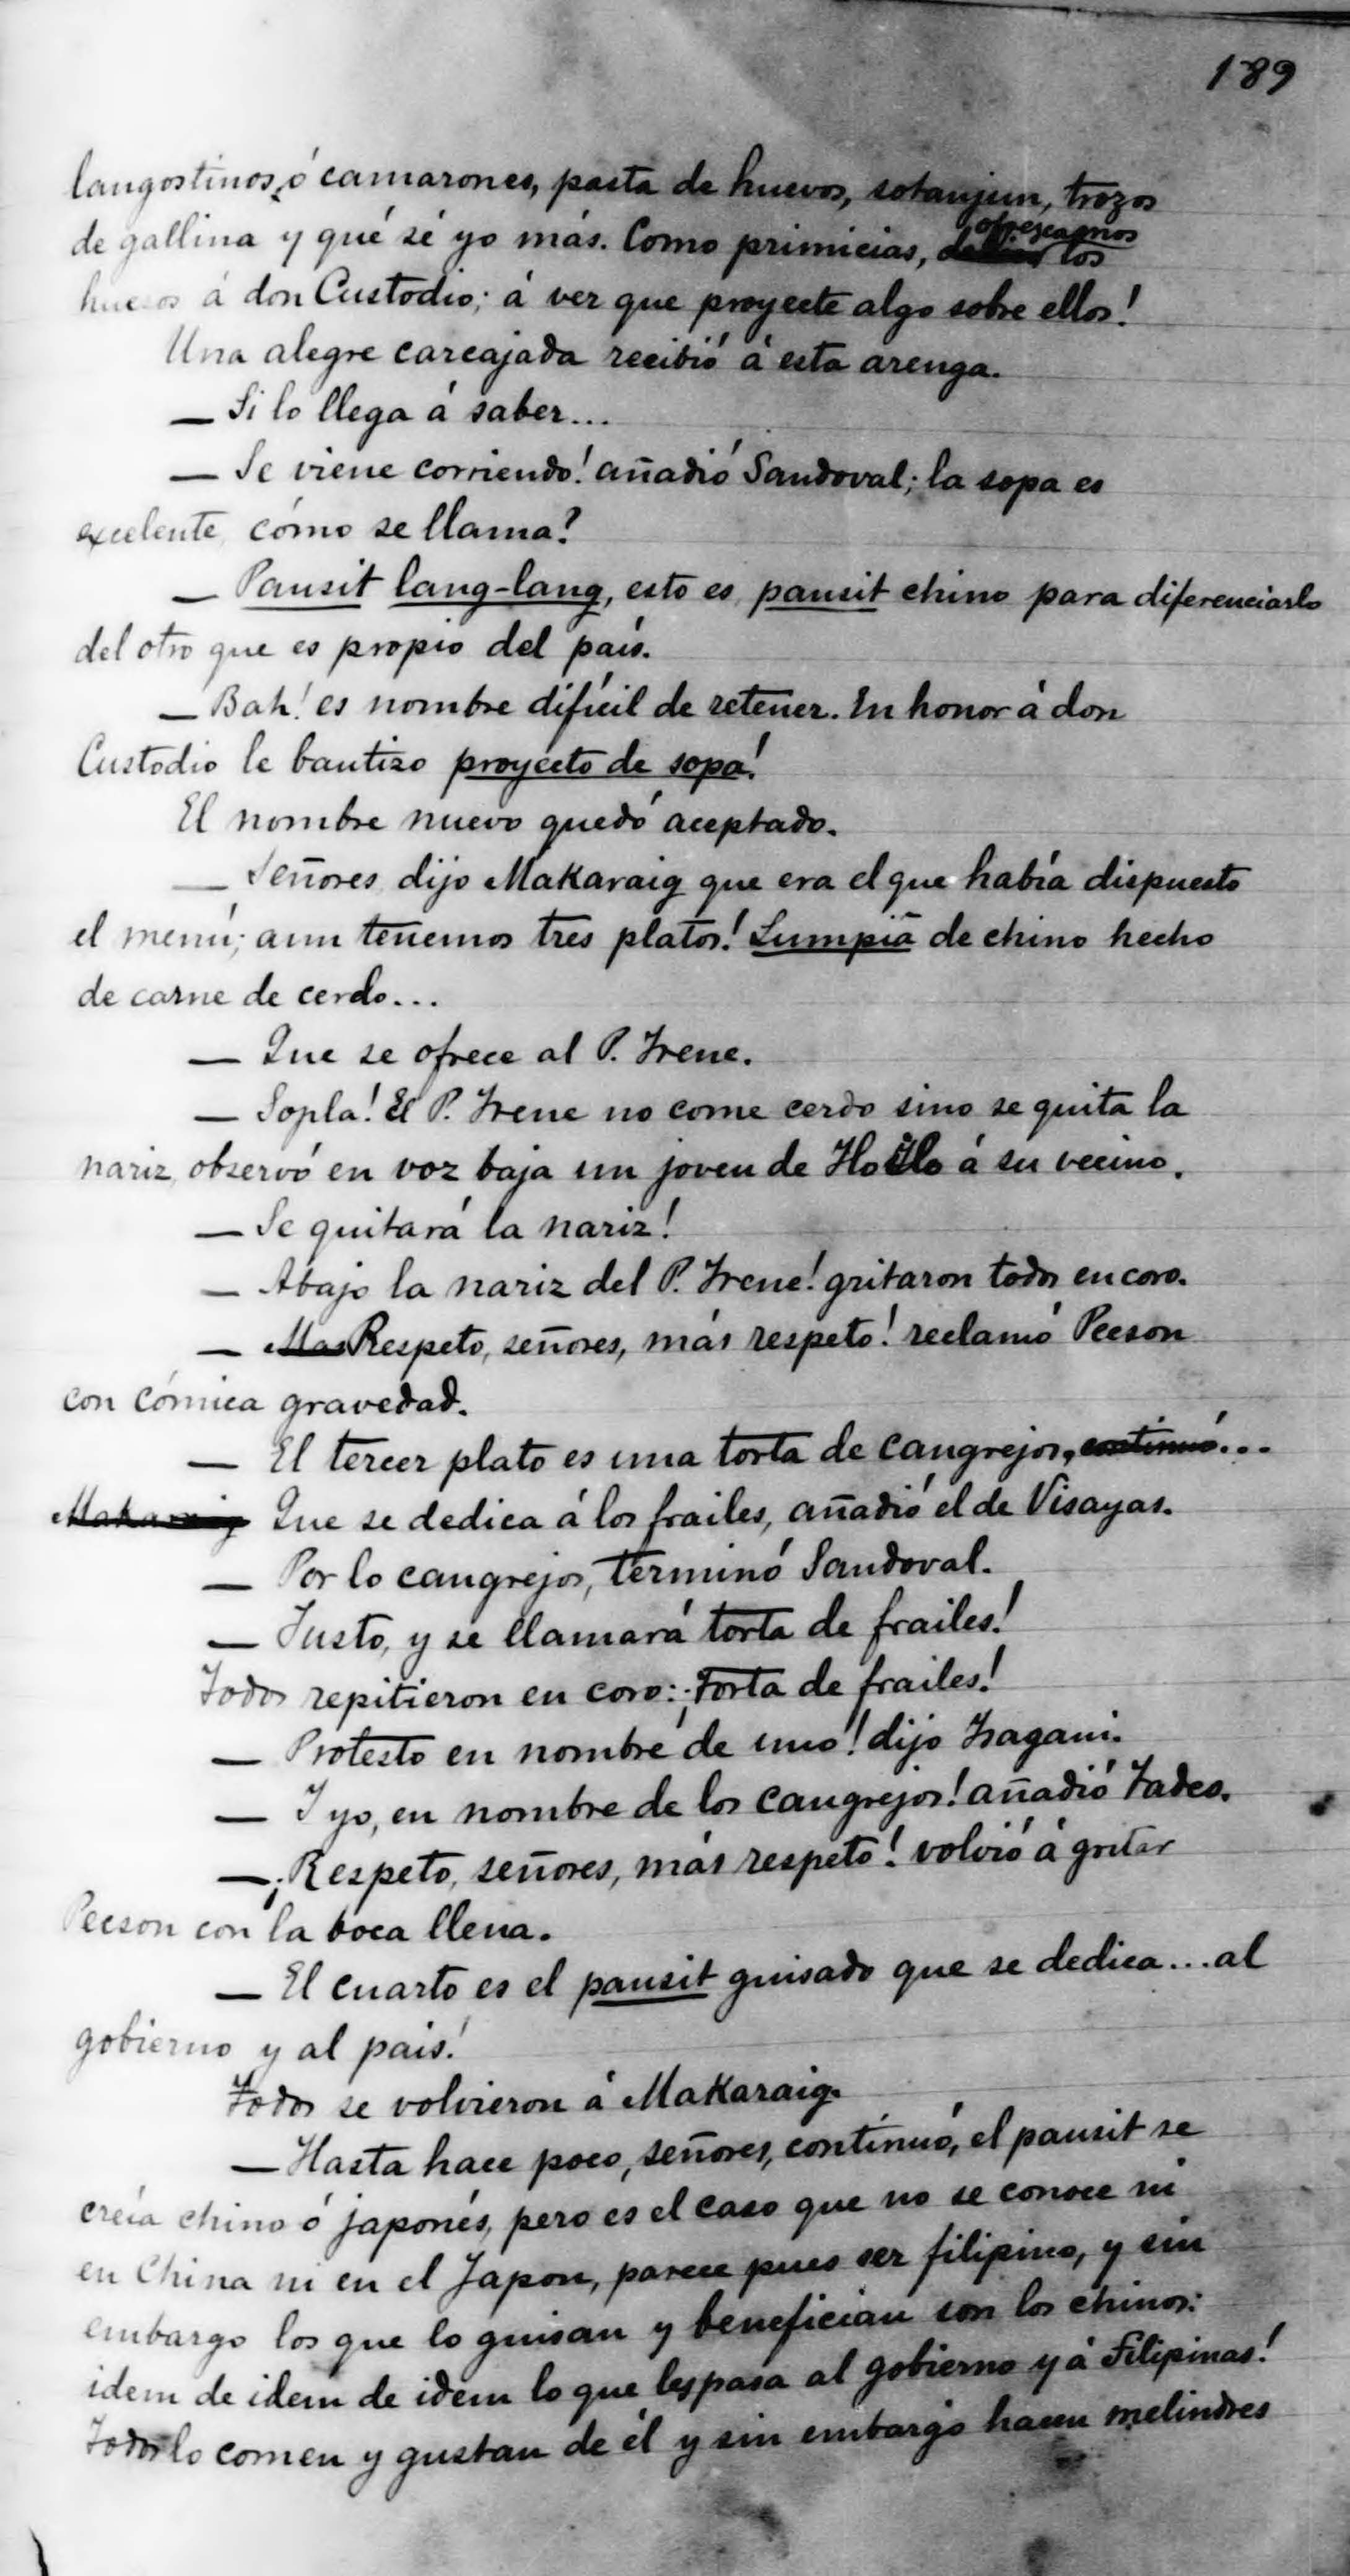 189
langostinos, ó camarones, pasta de huevos, sotanjun, trozos
de gallina y qué sé yo más. Como primicias, ofrezcamos los
huesos á don Custodio; á ver que proyecte algo sobre ellos!
Una alegre carcajada recibió á esta arenga.
— Si lo llega á saber...
— Se viene corriendo! añadió Sandoval; la sopa es
excelente, cómo se llama?
— Pansit lang-lang, esto es, pansit chino para diferenciarlo
del otro que es propio del país.
— Bah! es nombre difícil de retener. En honor á don
Custodio le bautizo proyecto de sopa!
El nombre nuevo quedó aceptado.
— Señores, dijo Makaraig que era el que había dispuesto
el menú; aun tenemos tres platos! Lumpiâ de chino hecho
de carne de cerdo...
— Que se ofrece al P. Irene.
— Sopla! El P. Irene no come cerdo sino se quita la
nariz, observó en voz baja un joven de Iloilo á su vecino.
— Se quitará la nariz!
— Abajo la nariz del P. Irene! gritaron todos en coro.
— Mas Respeto, señores, más respeto! reclamó Pecson
con cómica gravedad.
— El tercer plato es una torta de cangrejos, continuó...
Makaraig Que se dedica á los frailes, añadió el de Visayas.
— Por lo cangrejos, terminó Sandoval.
— Justo, y se llamará torta de frailes!
Todos repitieron en coro: ¡Torta de frailes!
— Protesto en nombre de uno! dijo Isagani.
— I yo, en nombre de los cangrejos! añadió Tadeo.
— ¡Respeto, señores, más respeto! volvió á gritar
Pecson con la boca llena.
— El cuarto es el pansit guisado que se dedica... al
gobierno y al pais!
Todos se volvieron á Makaraig.
— Hasta hace poco, señores, continuó, el pansit se
creía chino ó japonés, pero es el caso que no se conoce ni
en China ni en el Japon, parece pues ser filipino, y sin
embargo los que lo guisan y benefician son los chinos:
idem de idem de idem lo que les pasa al gobierno y á Filipinas!
Todos lo comen y gustan de él y sin embargo hacen melindres